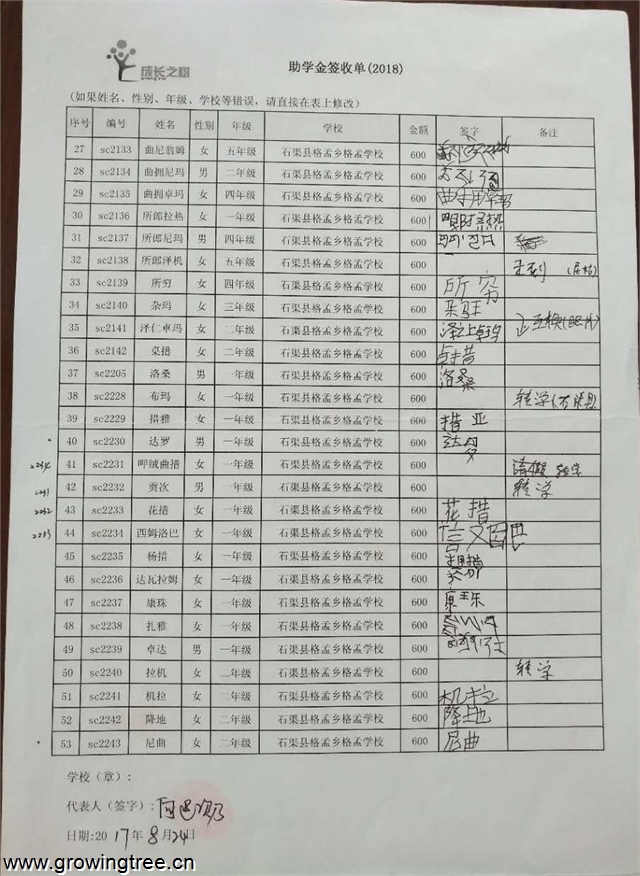 成长之树
助学金签收单(2018)
(如果姓名、性别、年级、学校等错误，请直接在表上修改)
序号 编号 姓名 性别 年级 学校 金额 签字 备注
27 sc2133 曲尼翁姆 女 五年级 石渠县格孟乡格孟学校 600
28 sc2134 曲拥尼玛 男 二年级 石渠县格孟乡格孟学校 600
29 sc2135 曲拥卓玛 女 四年级 石渠县格孟乡格孟学校 600
30 sc2136 所郎拉热 女 一年级 石渠县格孟乡格孟学校 600
31 sc2137 所郎尼玛 男 四年级 石渠县格孟乡格孟学校 600
32 sc2138 所郎泽机 女 五年级 石渠县格孟乡格孟学校 600
33 sc2139 所穷 女 四年级 石渠县格孟乡格孟学校 600 所穷
34 sc2140 杂玛 女 三年级 石渠县格孟乡格孟学校 600
35 sc2141 泽仁卓玛 女 二年级 石渠县格孟乡格孟学校 600
36 sc2142 桌措 女 二年级 石渠县格孟乡格孟学校 600
37 sc2205 洛桑 男 一年级 石渠县格孟乡格孟学校 600 洛桑
38 sc2228 布玛 女 一年级 石渠县格孟乡格孟学校 600 转学(石渠县
39 sc2229 措雅 女 一年级 石渠县格孟乡格孟学校 600 措亚
40 sc2230 达罗 男 一年级 石渠县格孟乡格孟学校 600 达罗
2234 41 sc2231 呷绒曲措 女 一年级 石渠县格孟乡格孟学校 600 请假 转学
2231 42 sc2232 贡次 男 一年级 石渠县格孟乡格孟学校 600 转学
2232 43 sc2233 花措 女 一年级 石渠县格孟乡格孟学校 600 花措
2233 44 sc2234 西姆洛巴 女 一年级 石渠县格孟乡格孟学校 600
45 sc2235 杨措 女 一年级 石渠县格孟乡格孟学校 600
46 sc2236 达瓦拉姆 女 一年级 石渠县格孟乡格孟学校 600
47 sc2237 康珠 女 一年级 石渠县格孟乡格孟学校 600
48 sc2238 扎雅 女 一年级 石渠县格孟乡格孟学校 600
49 sc2239 卓达 男 一年级 石渠县格孟乡格孟学校 600
50 sc2240 拉机 女 二年级 石渠县格孟乡格孟学校 600 转学
51 sc2241 机拉 女 二年级 石渠县格孟乡格孟学校 600 机拉
52 sc2242 降地 女 二年级 石渠县格孟乡格孟学校 600 降地
53 sc2243 尼曲 女 二年级 石渠县格孟乡格孟学校 600 尼曲
学校（章）:
代表人（签字）:
日期:2017年8月24日
www.growingtree.cn